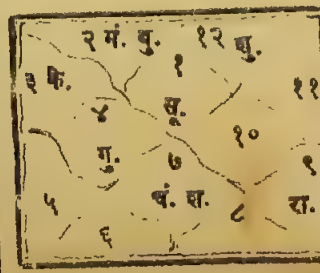 २ मं. बु. १२ शु.
१
३ के. ११
४ सू.
१०
गु. ७ ९
५ चं. श. ८ रा.
६